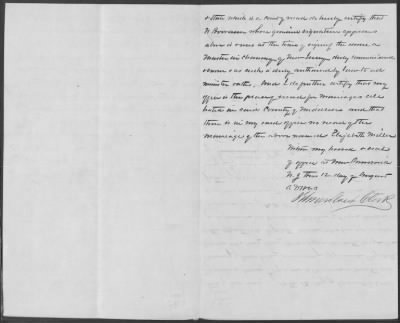 & then which is a court of record do hereby certify that
whose genuine signature appears
above is was at the time of signing the same a
Master in Chancery of New Jersey duly commissioned
& sworn & as such duly authorized by law to ad
minister oaths. And I do further certify that my
office is the place of record for marriages cele
brated in said County of Middlesex and that
there is in my said office no record of the
marriage of the above named Elizabeth Miller
Witness my hand & seal
of office at New Brunswick
N. J. this 12 day of August
Clerk